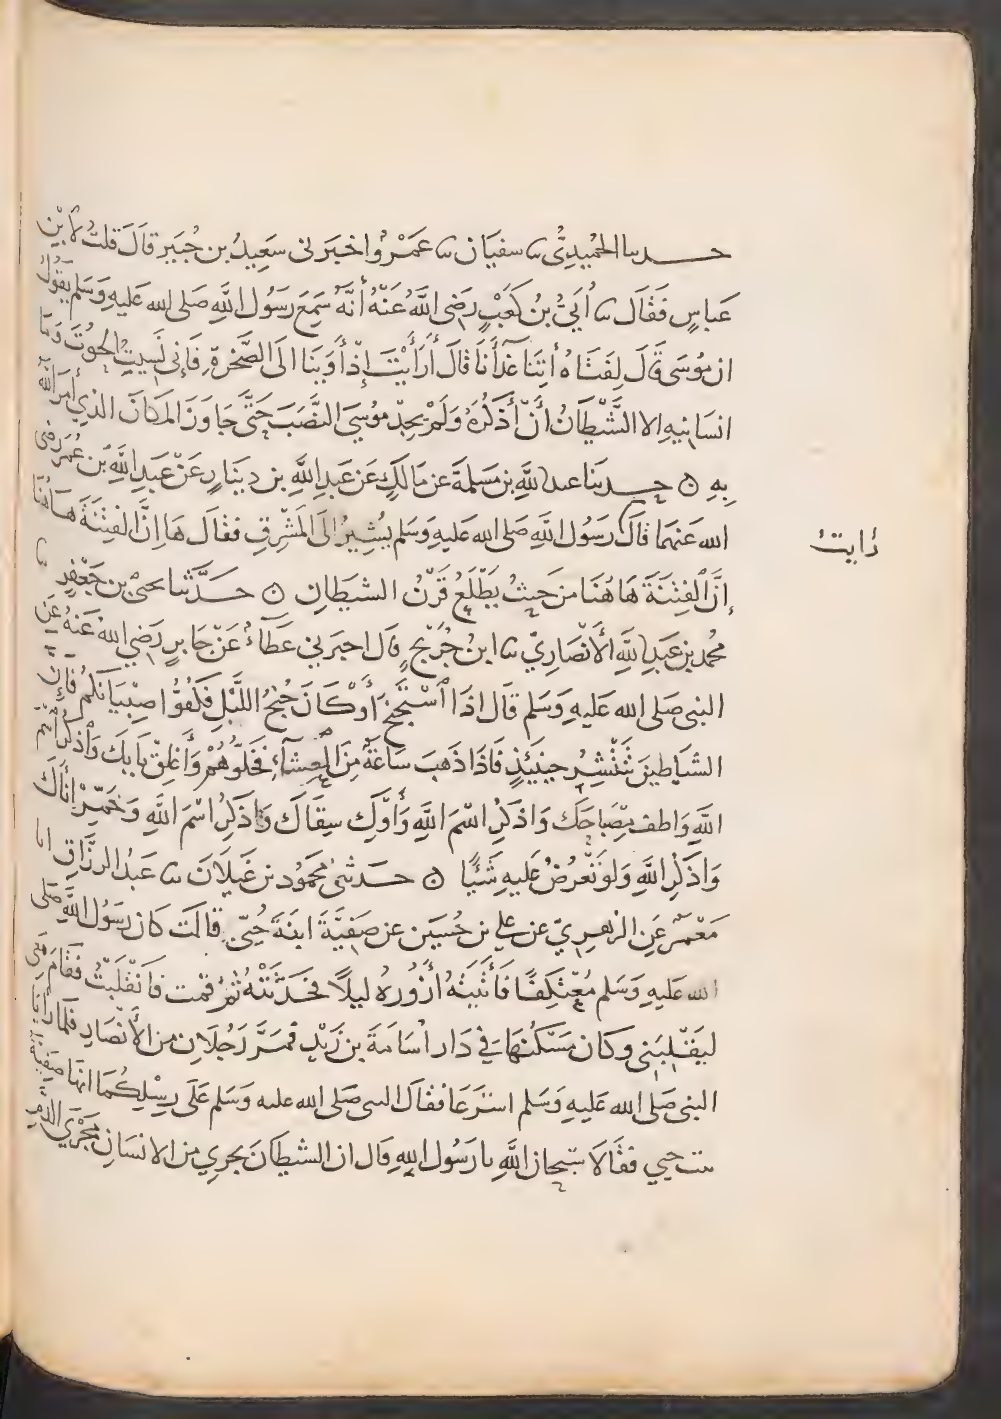 حدثنا الحُمَيدِيُّ ثنا سفيَان ثنا عَمْرُو اخبَرَنى سَعِيدُ بن جُبَيرٍ قَالَ قلتُ لابْنِ
عَباسٍ فَقَال ثنا اُبَيُّ بنُ كَعْبٍ رَضِى اللَّهُ عَنْهُ أنَّهُ سَمِعَ رَسُول اللَّهِ صَلى الله عَليهِ وَسَلم يَقُولُ
ان مُوسَى قَالَ لِفَتَاهُ أتِنَا غَدَآنَا قَالَ أرَأيْتَ إذْ أوَينَا الَى الصَّخرَةِ فَإنى نَسِيتُ الحوُتَ وَمَا
انسَانِيهِ الا الشَّيْطَانُ أَنْ أذكُرَهُ وَلَمْ يَجِدْ مُوسَى النَّصَبَ حَتَّى جَاوَزَ المَكَانَ الذِي أمَرَ اللَّهُ
بِهِ ۞ حدثنَا عبد اللَّهِ بن مَسلمَةَ عَن مَالكٍ عَن عَبدِ اللَّهِ بن دِينَارٍ عَنْ عَبدِ اللَّهِ بن عُمَرَ رَضى
الله عَنهمَا قَالَ رَسُول اللَّهِ صَلى الله عَليهِ وَسَلم يُشِيرُ الَى المَشْرِقِ فقَالَ هَا اِنَّ الفِتنَةَ هَاهُنَا
رَايتُ
إنَّ الفِتنَةَ هَا هُنَا مِن حَيثُ يَطْلُعُ قَرْنُ الشيطَانِ ۞ حَدَّثنا يحيىَ بن جَعْفَرٍ ثنا
مُحمد بن عَبدِ اللَّهِ الأَنْصَارِيّ ثنا ابنُ جُرَيْجٍ قَال اخبَرنِي عَطَآءُ عَنْ جَابِرٍ رَضِي الله عَنهُ عَنِ
النبى صَلى الله عَليهِ وَسَلم قَال اذَا اسْتَجْنَحَ أَوْ كَانَ جُنْحُ اللَّيْلِ فَكُفُّوا صِبْيَانَكُم فَإنَّ
الشيَاطِينَ تَنْتَشِرُ حِينَئِذٍ فَاذَا ذَهَبَ سَاعَةٌ مِنَ العِشَآءِ فَخَلُّوهُمْ وَأغلِقْ بَابَكَ وَاذكُر اسْمَ
اللَّهِ وَاطفِ مِصْبَاحَكَ وَاذكُرْ اسْمَ اللَّهِ وَأَوْكِ سِقَاكَ وَاذكُرْ اسْمَ اللَّهِ وَخَمِّرْ اِنَاكَ
وَاذكُرِ اللَّهِ وَلَو تَعْرُضُ عَليهِ شَيْئًا ۞ حَدثنى مَحمُود بن غَيلَانَ ثنا عَبدُ الرزَّاقِ انا
مَعْمَرٌ عَنِ الزهرِيّ عَن علي بن حُسَين عَن صَفِيَّةَ ابنَةَ حُيَيّ قالَت كَان رَسُول اللَّهِ صَلى
الله عَليهِ وَسَلم مُعْتَكِفًا فَأَتَيْتُهُ أَزُورُهُ لَيلًا فَحَدَّثْتُهُ ثُمَّ قمت فَانْقَلَبْتُ فقَامَ مَعِى
ليَقْلِبَنِى وَكَان مَسْكَنُهَا فِي دَار اُسَامَةَ بن زَيْدٍ فَمَرَّ رَجُلَانِ مِن الأنْصَارِ فلمَّا رَأيَا
النبى صَلى الله عَليهِ وَسَلم اسْرَعَا فقَال النبى صَلى الله عليه وَسَلم عَلَى رِسْلِكُمَا انهَا صَفِيَّة
بنت حيي فقَالَا سُبحَان اللَّهِ يَا رَسُول اللهِ قَال ان الشيطَانَ يَجرِي مِن الانسَانِ مَجْرَى الدَّمِ